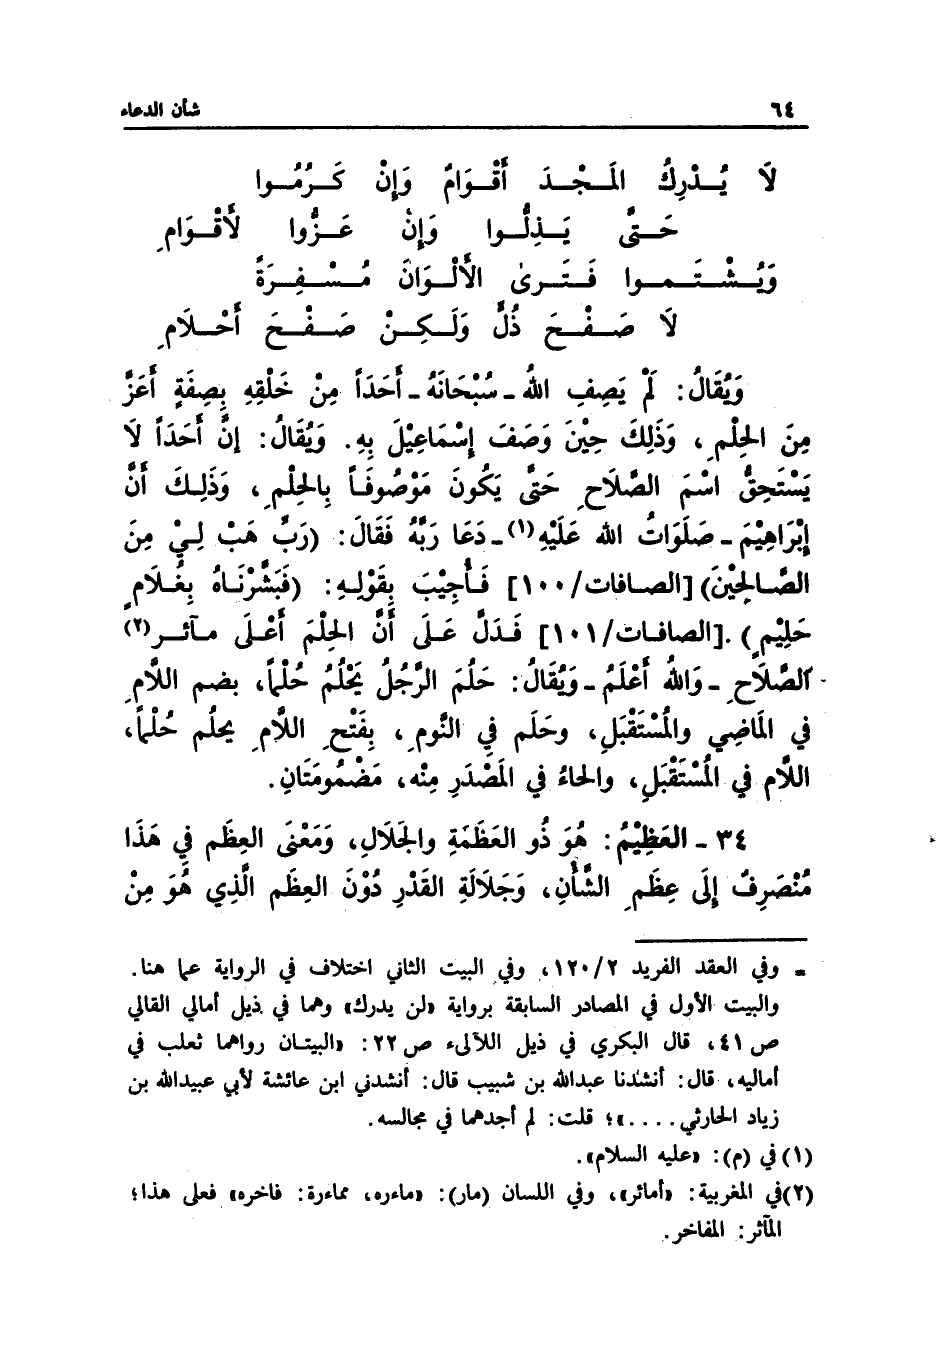 ٦٤ شأن الدعاء
لَا يُـدْرِكُ المَـجْـدَ أَقْـوَامٌ وَإِنْ كَـرُمُـوا
حَـتَّى يَـذِلُّـوا وَإِنْ عَـزُّوا لأَقْـوَامِ
وَيُـشْـتَـمـوا فَـتَـرىٰ الأَلْـوَانَ مُـسْـفِـرَةً
لَا صَـفْـحَ ذُلٍّ وَلَـكِـنْ صَـفْـحَ أَحْـلَامِ
وَيُقَالُ: لَمْ يَصِفِ اللهُ ـ سُبْحَانَهُ ـ أَحَدَاً مِنْ خَلْقِهِ بِصِفَةٍ أَعَزَّ
مِنَ الحِلْمِ، وَذَلِكَ حِيْنَ وَصَفَ إِسْمَاعِيْلَ بِهِ. وَيُقَالُ: إِنَّ أَحَدَاً لَا
يَسْتَحِقُّ اسْمَ الصَّلَاحِ حَتَّى يَكُونَ مَوْصُوفَاً بِالحِلْمِ، وَذَلِكَ أَنَّ
إِبْرَاهِيْمَ ـ صَلَوَاتُ الله عَلَيْهِ(١) ـ دَعَا رَبَّهُ فَقَالَ: (رَبِّ هَبْ لِيْ مِنَ
الصَّالِحِيْنَ) [الصافات/١٠٠] فَأُجِيْبَ بِقَوْلِهِ: (فَبَشَّرْنَاهُ بِغُلَامٍ
حَلِيْمٍ). [الصافات/١٠١] فَدَلَّ عَلَى أَنَّ الحِلْمَ أَعْلَى مآثر(٢)
الصَّلَاحِ ـ وَاللهُ أَعْلَمُ ـ وَيُقَالُ: حَلُمَ الرَّجُلُ يَحْلُمُ حُلْمَاً، بضم اللَّامِ
في المَاضِي والمُسْتَقْبَلِ، وحَلَم في النَّومِ، بِفَتْحِ اللَّامِ يحلُم حُلْماً،
اللَّام في المُسْتَقْبَلِ، والحاءُ في المَصْدَرِ مِنْه، مَضْمُومَتَانِ.
٣٤ ـ العَظِيْمُ: هُوَ ذُو العَظَمَةِ والجَلَالِ، وَمَعْنَى العِظَم في هَذَا
مُنْصَرِفٌ إِلَى عِظَمِ الشَّأْنِ، وَجَلَالَةِ القَدْرِ دُوْنَ العِظَم الَّذِي هُوَ مِنْ
= وفي العقد الفريد ١٢٠/٢، وفي البيت الثاني اختلاف في الرواية عما هنا.
والبيت الأول في المصادر السابقة برواية «لن يدرك» وهما في ذيل أمالي القالي
ص ٤١، قال البكري في ذيل اللآلىء ص ٢٢: «البيتان رواهما ثعلب في
أماليه، قال: أنشدنا عبدالله بن شبيب قال: أنشدني ابن عائشة لأبي عبيدالله بن
زياد الحارثي....»؛ قلت: لم أجدهما في مجالسه.
(١) في (م): «عليه السلام».
(٢) في المغربية: «أمائر»، وفي اللسان (مار): «ماءره، مماءرة: فاخره» فعلى هذا؛
المآثر: المفاخر.